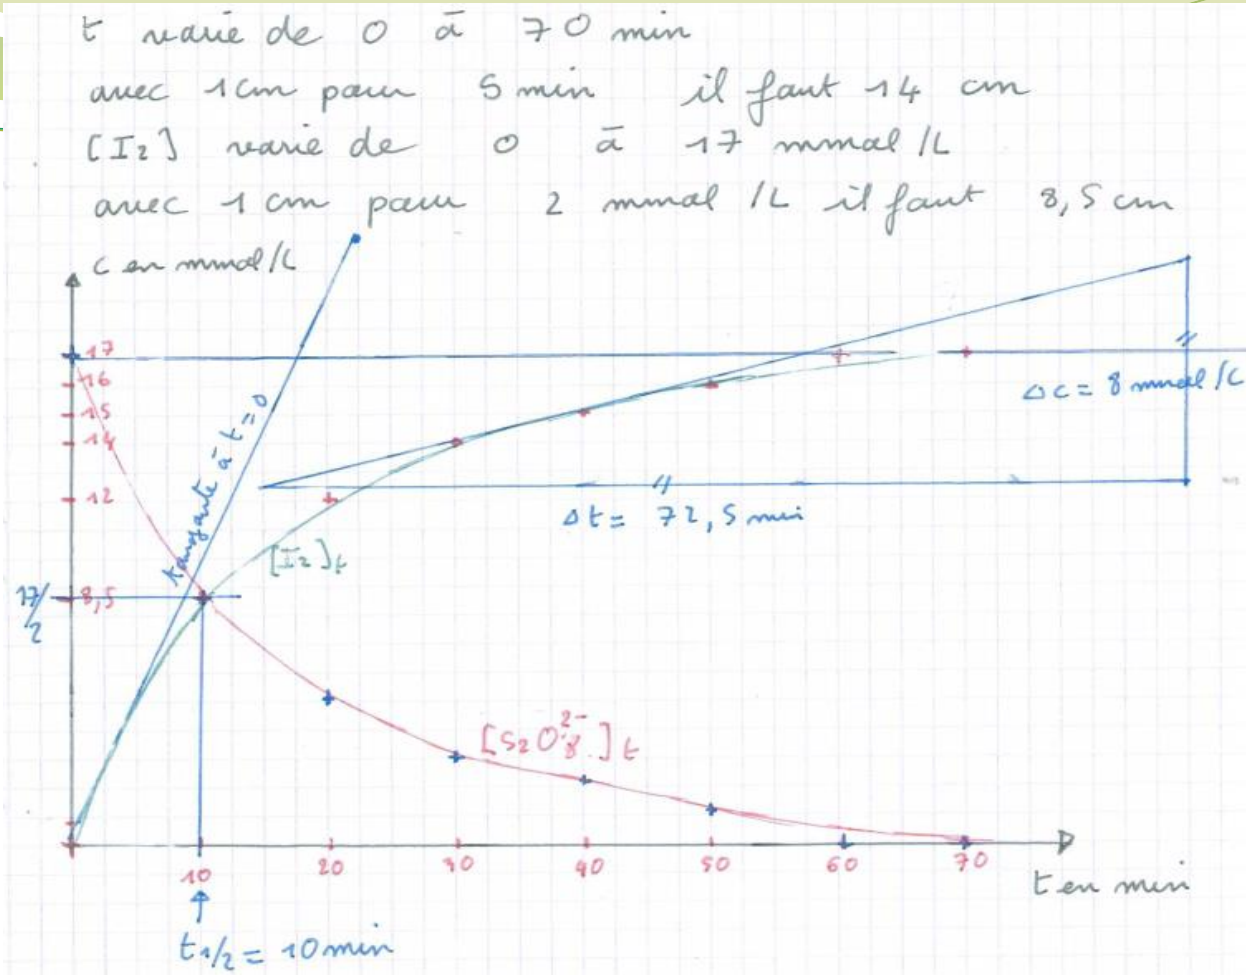 t varie de 0 à 70 min
avec 1cm pour 5 min il faut 14 cm
[I2] varie de 0 à 17 mmol/L
avec 1 cm pour 2 mmol/L il faut 8,5 cm
c en mmol/L
17
16
15
14
12
17/2
8,5
tangente à t=0
Δc = 8 mmol/L
Δt = 72,5 min
[I2]t
[S2O8 2-]t
10
20
30
40
50
60
70
t en min
t1/2 = 10 min